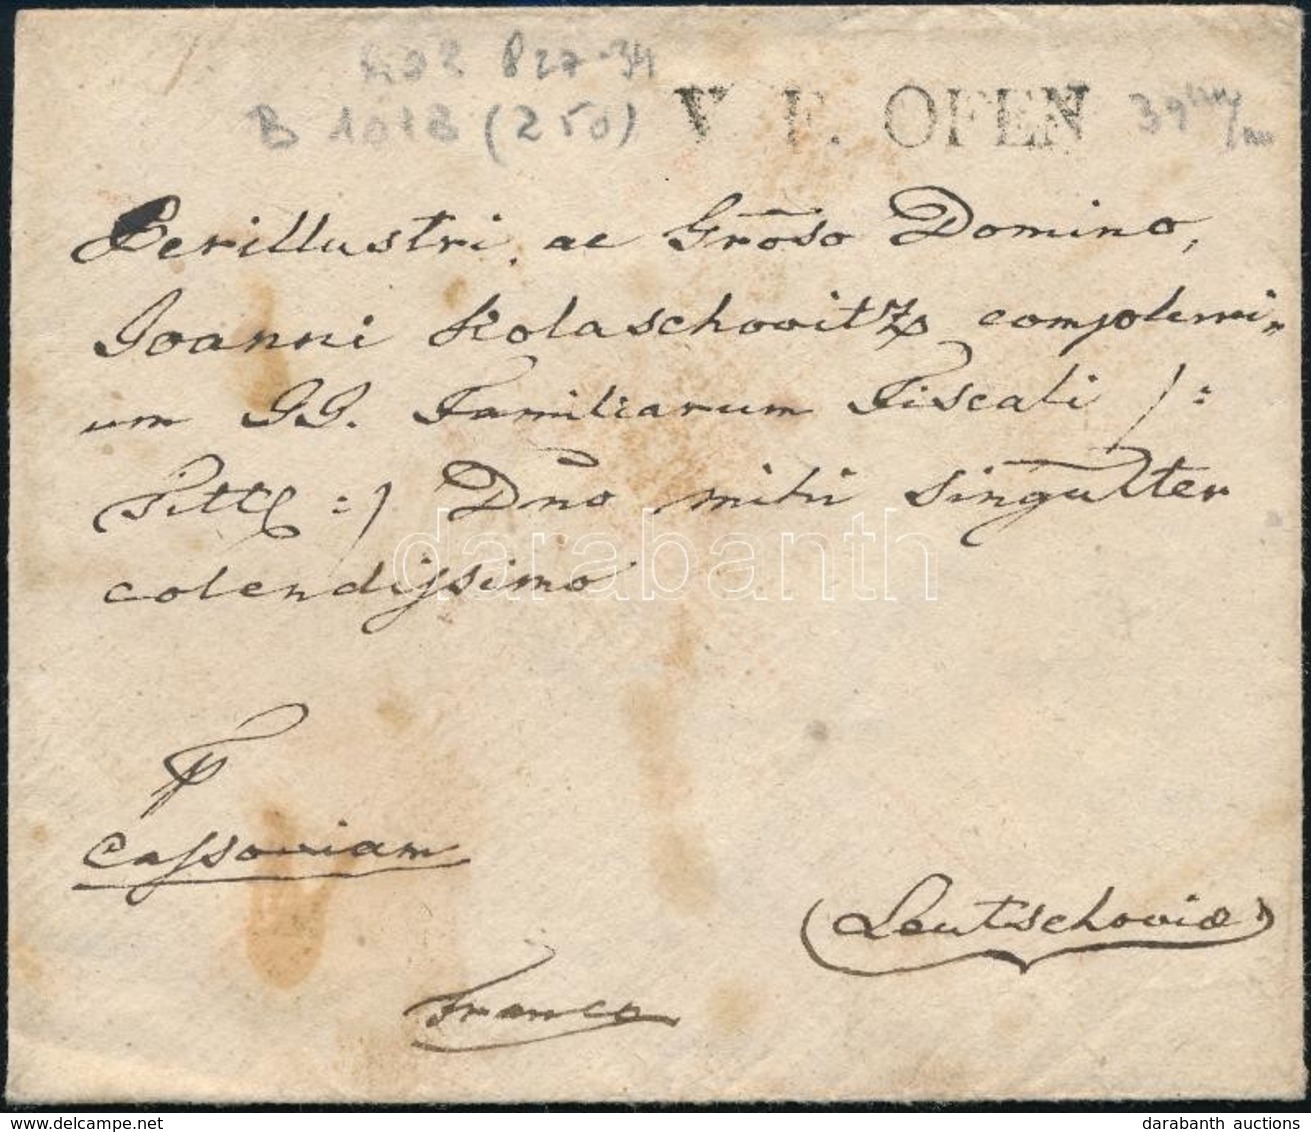 827-34
B 101B (250) V. F. OFEN 39
Perillustri, ac Grōso Domino,
Joanni Kolaschovitz complemi„
um II. Familiarum Fiscali /:
Titt :/ Dn̄o mihi singūlter
colendissimo
Cassoviam
(Leutschoviæ)
Franco
darabanth
darabanth auctions